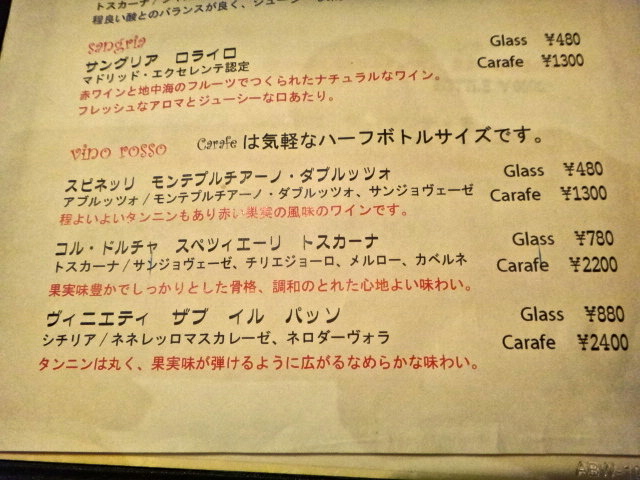 トスカーナ/
程良い酸とのバランスが良く、ジューシー
sangria
サングリア ロライロ
Glass ¥480
マドリッド・エクセレンテ認定
Carafe ¥1300
赤ワインと地中海のフルーツでつくられたナチュラルなワイン。
フレッシュなアロマとジューシーな口あたり。
vino rosso Carafe は気軽なハーフボトルサイズです。
スピネッリ モンテプルチアーノ・ダブルッツォ
Glass ¥480
アブルッツォ/モンテプルチアーノ・ダブルッツォ、サンジョヴェーゼ
Carafe ¥1300
程よいよいタンニンもあり赤い果実の風味のワインです。
コル・ドルチャ スペツィエーリ トスカーナ
Glass ¥780
トスカーナ/サンジョヴェーゼ、チリエジョーロ、メルロー、カベルネ
Carafe ¥2200
果実味豊かでしっかりとした骨格、調和のとれた心地よい味わい。
ヴィニエティ ザブ イル パッソ
Glass ¥880
シチリア/ネネレッロマスカレーゼ、ネロダーヴォラ
Carafe ¥2400
タンニンは丸く、果実味が弾けるように広がるなめらかな味わい。